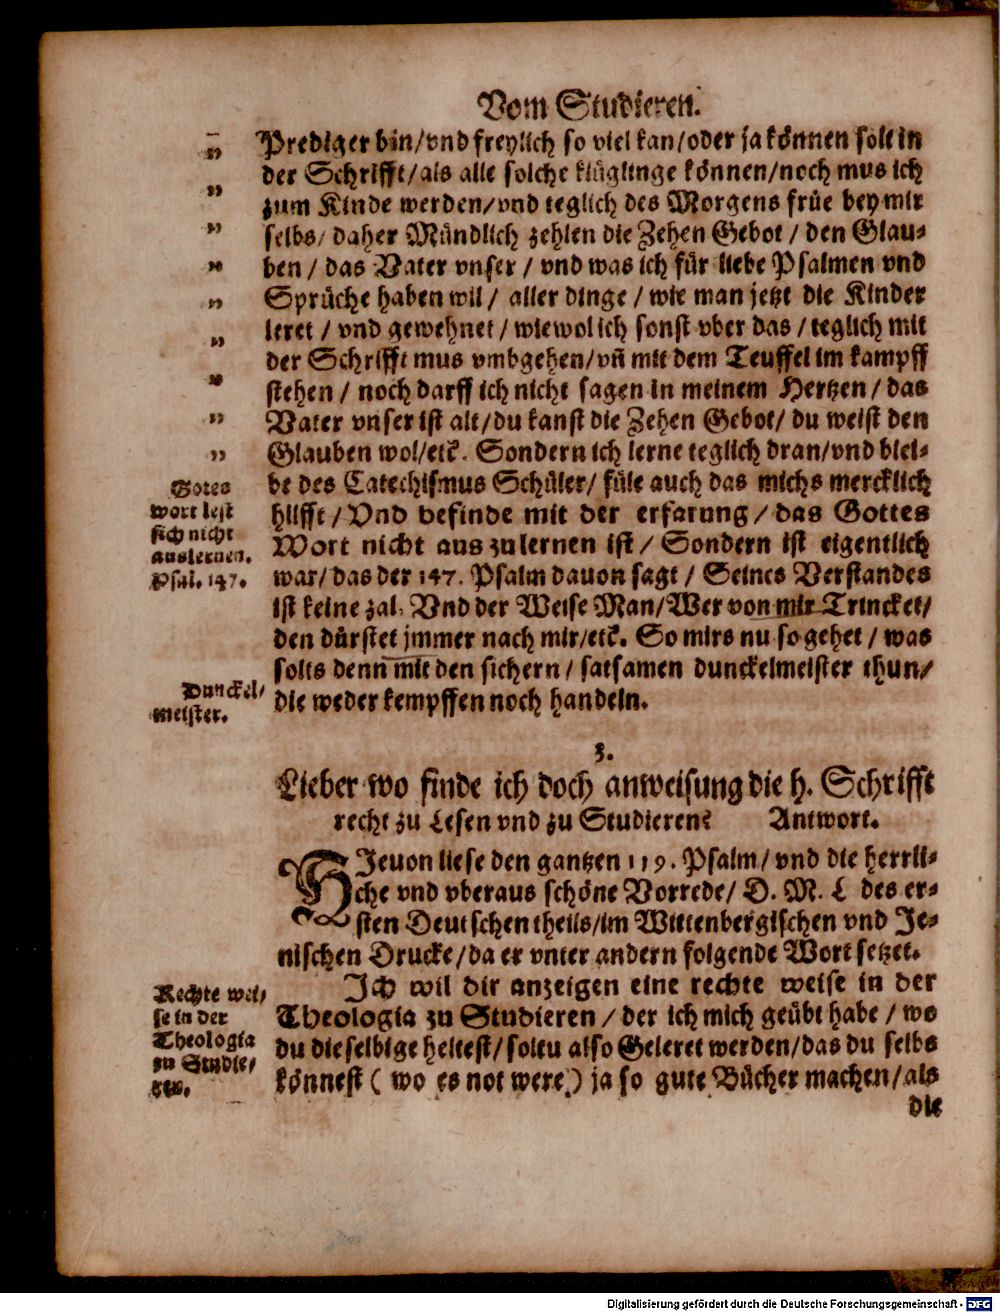 Vom Studieren.
Prediger bin/vnd freylich so viel kan/oder ja können solt in
der Schrifft/als alle solche klüglinge können/noch mus ich
zum Kinde werden/vnd teglich des Morgens früe bey mir
selbs/ daher Mündlich zehlen die Zehen Gebot / den Glau-
ben / das Vater vnser / vnd was ich für liebe Psalmen vnd
Sprüche haben wil / aller dinge / wie man jetzt die Kinder
leret / vnd gewehnet / wiewol ich sonst vber das / teglich mit
der Schrifft mus vmbgehen/vñ mit dem Teuffel im kampff
stehen / noch darff ich nicht sagen in meinem Hertzen / das
Vater vnser ist alt/du kanst die Zehen Gebot/ du weist den
Glauben wol/etc. Sondern ich lerne teglich dran/vnd blei-
be des Catechismus Schüler/ füle auch das michs mercklich
hilfft / Vnd befinde mit der erfarung / das Gottes
Wort nicht aus zulernen ist / Sondern ist eigentlich
war/ das der 147. Psalm dauon sagt / Seines Verstandes
ist keine zal. Vnd der Weise Man/Wer von mir Trincket/
den dürstet jmmer nach mir/etc. So mirs nu so gehet / was
solts denn mit den sichern / satsamen dunckelmeister thun/
die weder kempffen noch handeln.
Gotes
wort lest
sich nicht
auslernen.
Psal. 147.
Dunckel/
meister.
3.
Lieber wo finde ich doch anweisung die h. Schrifft
recht zu Lesen vnd zu Studieren? Antwort.
HJeuon liese den gantzen 119. Psalm/ vnd die herrli-
che vnd vberaus schöne Vorrede/ D. M. L des er-
sten Deutschen theils/im Wittenbergischen vnd Je-
nischen Drucke/da er vnter andern folgende Wort setzet.
Jch wil dir anzeigen eine rechte weise in der
Theologia zu Studieren / der ich mich geübt habe / wo
du dieselbige heltest/ soltu also Geleret werden/das du selbs
könnest ( wo es not were ) ja so gute Bücher machen/als
die
Rechte wei/
se in der
Theologia
zu Studie/
ren.
Digitalisierung gefördert durch die Deutsche Forschungsgemeinschaft - DFG